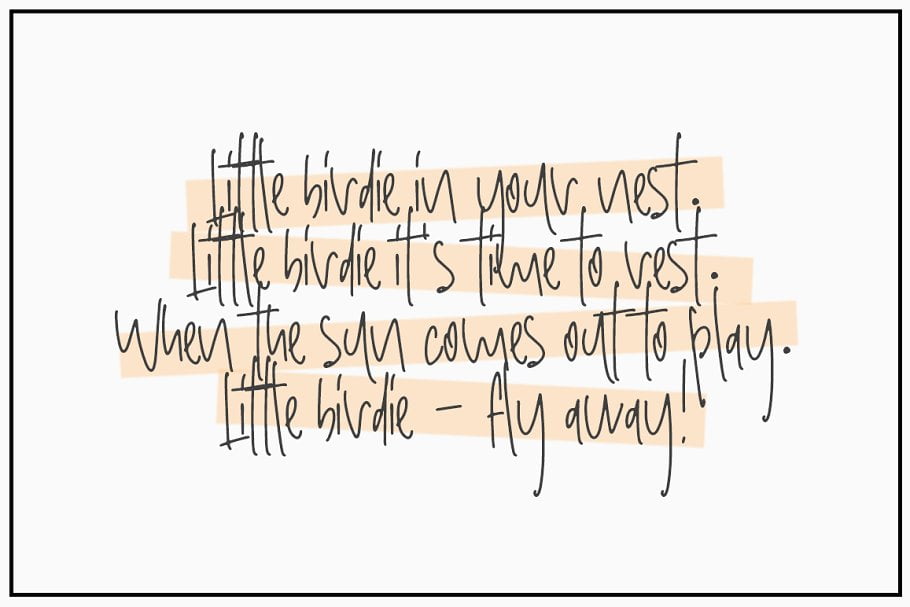 Little birdie in your nest.
Little birdie it's time to rest.
When the sun comes out to play.
Little birdie - fly away!